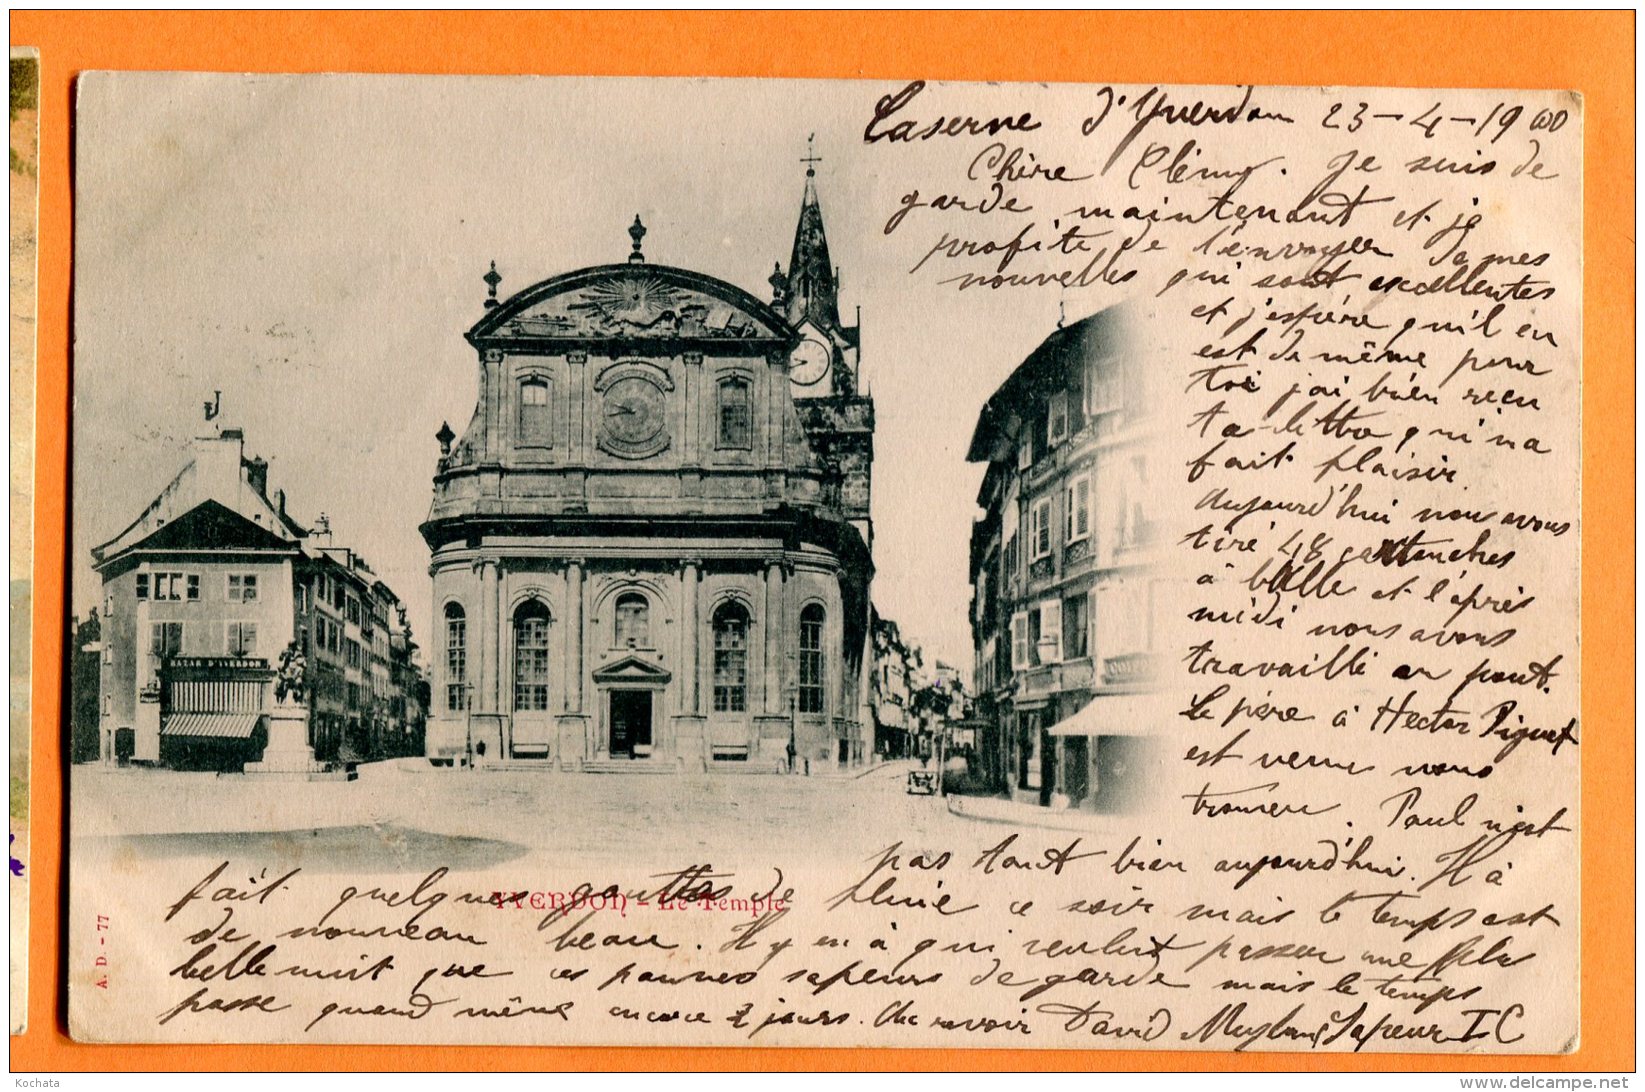 Caserne d'Yverdon 23-4-1900
Chère Je suis de
garde maintenant et je
profite de t'envoyer de mes
nouvelles qui sont excellentes
et j'espère qu'il en
est de même pour
toi j'ai bien reçu
ta lettre qui m'a
fait plaisir
aujourd'hui nous avons
tiré 48 cartouches
à balle et l'après
midi nous avons
travaillé au pont.
Le père à Hector Piguet
est venu nous
trouver. Paul n'est
pas tout bien aujourd'hui. Il à
fait quelques gouttes de pluie ce soir mais le temps est
de nouveau beau. Il y en à qui veulent passer une plus
belle nuit que ces pauvres sapeurs de garde mais le temps
passe quand même encore 2 jours. Au revoir David Sapeur I C
BAZAR D'YVERDON
YVERDON - Le Temple
A. D. - 77
Kochata
delcampe.net